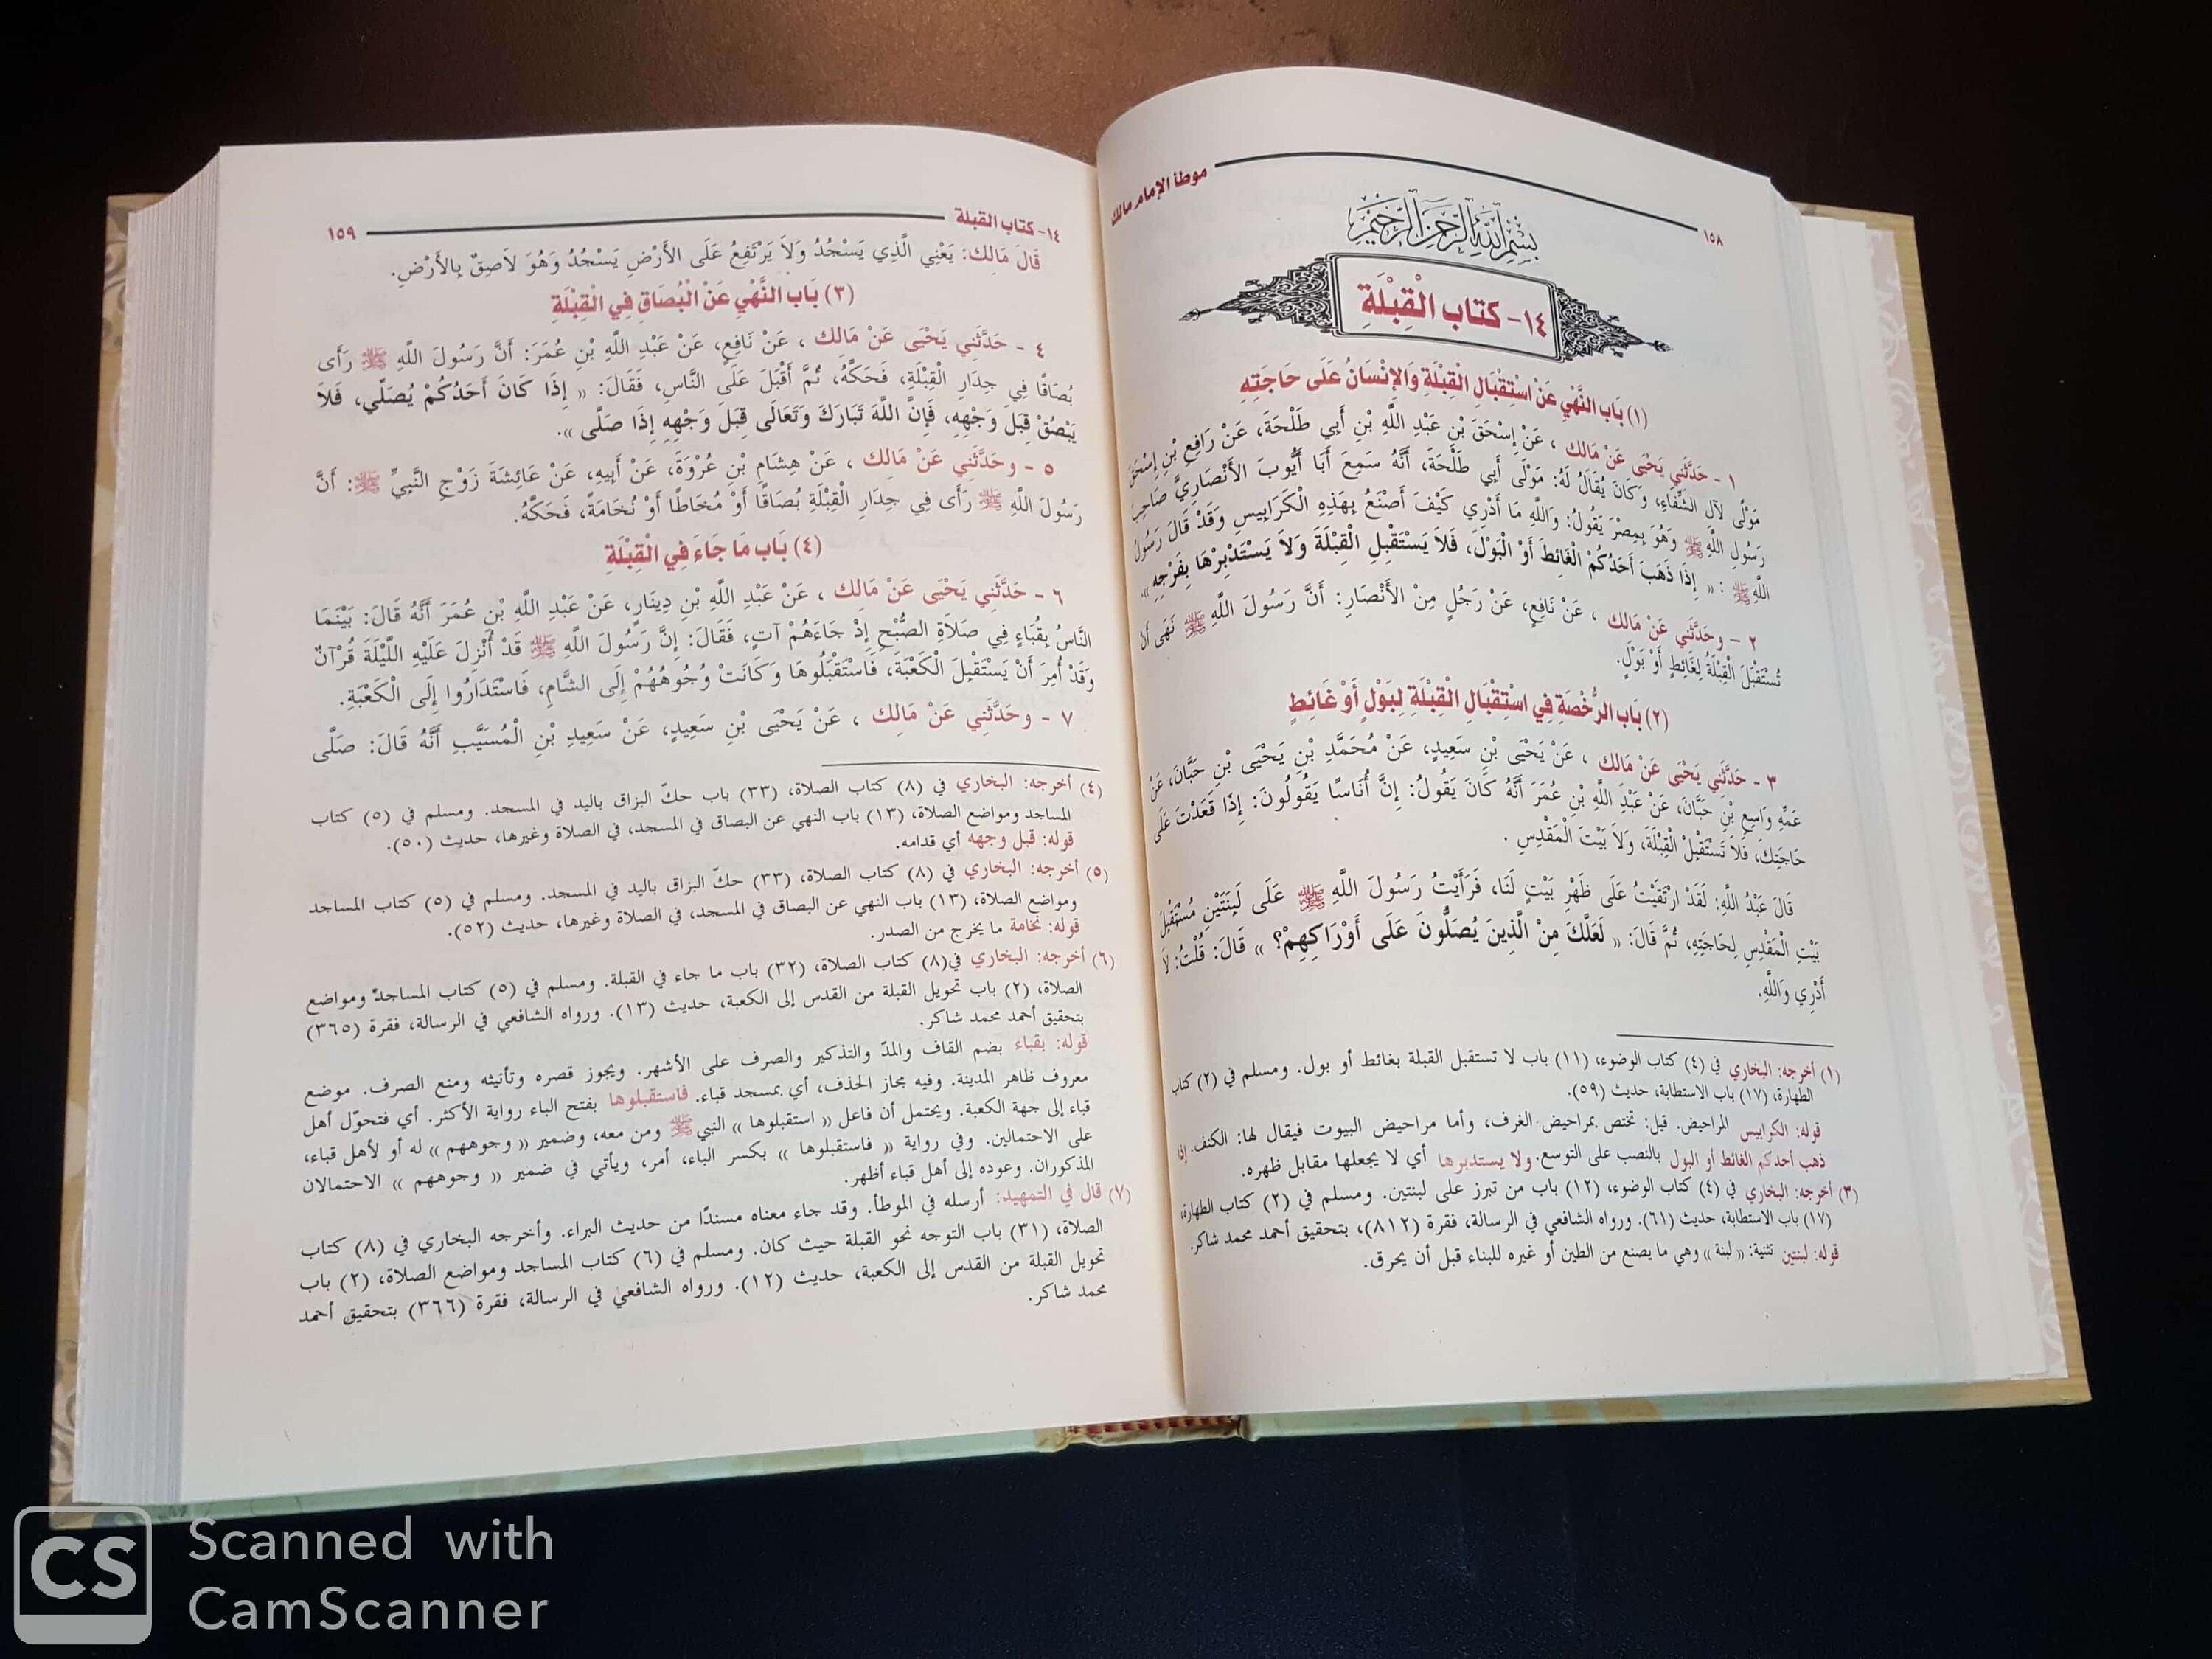 موطأ الإمام مالك
١٥٨
بسم الله الرحمن الرحيم
١٤- كتاب الْقِبْلَةِ
(١) بَاب النَّهْيِ عَنْ اسْتِقْبَالِ الْقِبْلَةِ وَالإِنْسَانُ عَلَى حَاجَتِهِ
١ - حَدَّثَنِي يَحْيَى عَنْ مَالك ، عَنْ إِسْحَقَ بْنِ عَبْدِ اللَّهِ بْنِ أَبِي طَلْحَةَ، عَنْ رَافِعِ بْنِ إِسْحَقَ
مَوْلًى لآلِ الشِّفَاءِ، وَكَانَ يُقَالُ لَهُ: مَوْلَى أَبِي طَلْحَةَ، أَنَّهُ سَمِعَ أَبَا أَيُّوبَ الأَنْصَارِيَّ صَاحِبَ
رَسُولِ اللَّهِ ﷺ وَهُوَ بِمِصْرَ يَقُولُ: وَاللَّهِ مَا أَدْرِي كَيْفَ أَصْنَعُ بِهَذِهِ الْكَرَابِيسِ وَقَدْ قَالَ رَسُولُ
اللَّهِ ﷺ : « إِذَا ذَهَبَ أَحَدُكُمْ الْغَائِطَ أَوْ الْبَوْلَ، فَلاَ يَسْتَقْبِلِ الْقِبْلَةَ وَلاَ يَسْتَدْبِرْهَا بِفَرْجِهِ ».
٢ - وحَدَّثَنِي عَنْ مَالك ، عَنْ نَافِعٍ، عَنْ رَجُلٍ مِنْ الأَنْصَارِ: أَنَّ رَسُولَ اللَّهِ ﷺ نَهَى أَنْ
تُسْتَقْبَلَ الْقِبْلَةُ لِغَائِطٍ أَوْ بَوْلٍ.
(٢) بَاب الرُّخْصَةِ فِي اسْتِقْبَالِ الْقِبْلَةِ لِبَوْلٍ أَوْ غَائِطٍ
٣ - حَدَّثَنِي يَحْيَى عَنْ مَالك ، عَنْ يَحْيَى بْنِ سَعِيدٍ، عَنْ مُحَمَّدِ بْنِ يَحْيَى بْنِ حَبَّانَ، عَنْ
عَمِّهِ وَاسِعِ بْنِ حَبَّانَ، عَنْ عَبْدِ اللَّهِ بْنِ عُمَرَ أَنَّهُ كَانَ يَقُولُ: إِنَّ أُنَاسًا يَقُولُونَ: إِذَا قَعَدْتَ عَلَى
حَاجَتِكَ، فَلاَ تَسْتَقْبِلْ الْقِبْلَةَ، وَلاَ بَيْتَ الْمَقْدِسِ .
قَالَ عَبْدُ اللَّهِ: لَقَدْ ارْتَقَيْتُ عَلَى ظَهْرِ بَيْتٍ لَنَا، فَرَأَيْتُ رَسُولَ اللَّهِ ﷺ عَلَى لَبِنَتَيْنِ مُسْتَقْبِلَ
بَيْتِ الْمَقْدِسِ لِحَاجَتِهِ، ثُمَّ قَالَ: « لَعَلَّكَ مِنْ الَّذِينَ يُصَلُّونَ عَلَى أَوْرَاكِهِمْ؟ » قَالَ: قُلْتُ: لاَ
أَدْرِي وَاللَّهِ.
(١) أخرجه: البخاري في (٤) كتاب الوضوء، (١١) باب لا تستقبل القبلة بغائط أو بول. ومسلم في (٢) كتاب
الطهارة، (١٧) باب الاستطابة، حديث (٥٩).
قوله: الكرابيس المراحيض. قيل: تختص بمراحيض الغرف، وأما مراحيض البيوت فيقال لها: الكنف. إذا
ذهب أحدكم الغائط أو البول بالنصب على التوسع. ولا يستدبرها أي لا يجعلها مقابل ظهره.
(٣) أخرجه: البخاري في (٤) كتاب الوضوء، (١٢) باب من تبرز على لبنتين. ومسلم في (٢) كتاب الطهارة،
(١٧) باب الاستطابة، حديث (٦١). ورواه الشافعي في الرسالة، فقرة (٨١٢)، بتحقيق أحمد محمد شاكر.
قوله: لبنتين تثنية: « لبنة » وهي ما يصنع من الطين أو غيره للبناء قبل أن يحرق.
١٤- كتاب القبلة
١٥٩
قَالَ مَالِك: يَعْنِي الَّذِي يَسْجُدُ وَلاَ يَرْتَفِعُ عَلَى الأَرْضِ يَسْجُدُ وَهُوَ لاَصِقٌ بِالأَرْضِ.
(٣) بَاب النَّهْيِ عَنْ الْبُصَاقِ فِي الْقِبْلَةِ
٤ - حَدَّثَنِي يَحْيَى عَنْ مَالك ، عَنْ نَافِعٍ، عَنْ عَبْدِ اللَّهِ بْنِ عُمَرَ: أَنَّ رَسُولَ اللَّهِ ﷺ رَأَى
بُصَاقًا فِي جِدَارِ الْقِبْلَةِ، فَحَكَّهُ، ثُمَّ أَقْبَلَ عَلَى النَّاسِ، فَقَالَ: « إِذَا كَانَ أَحَدُكُمْ يُصَلِّي، فَلاَ
يَبْصُقْ قِبَلَ وَجْهِهِ، فَإِنَّ اللَّهَ تَبَارَكَ وَتَعَالَى قِبَلَ وَجْهِهِ إِذَا صَلَّى ».
٥ - وحَدَّثَنِي عَنْ مَالك ، عَنْ هِشَامِ بْنِ عُرْوَةَ، عَنْ أَبِيهِ، عَنْ عَائِشَةَ زَوْجِ النَّبِيِّ ﷺ: أَنَّ
رَسُولَ اللَّهِ ﷺ رَأَى فِي جِدَارِ الْقِبْلَةِ بُصَاقًا أَوْ مُخَاطًا أَوْ نُخَامَةً، فَحَكَّهُ.
(٤) بَاب مَا جَاءَ فِي الْقِبْلَةِ
٦ - حَدَّثَنِي يَحْيَى عَنْ مَالِك ، عَنْ عَبْدِ اللَّهِ بْنِ دِينَارٍ، عَنْ عَبْدِ اللَّهِ بْنِ عُمَرَ أَنَّهُ قَالَ: بَيْنَمَا
النَّاسُ بِقُبَاءٍ فِي صَلاَةِ الصُّبْحِ إِذْ جَاءَهُمْ آتٍ، فَقَالَ: إِنَّ رَسُولَ اللَّهِ ﷺ قَدْ أُنْزِلَ عَلَيْهِ اللَّيْلَةَ قُرْآنٌ
وَقَدْ أُمِرَ أَنْ يَسْتَقْبِلَ الْكَعْبَةَ، فَاسْتَقْبَلُوهَا وَكَانَتْ وُجُوهُهُمْ إِلَى الشَّامِ، فَاسْتَدَارُوا إِلَى الْكَعْبَةِ.
٧ - وحَدَّثَنِي عَنْ مَالِك ، عَنْ يَحْيَى بْنِ سَعِيدٍ، عَنْ سَعِيدِ بْنِ الْمُسَيَّبِ أَنَّهُ قَالَ: صَلَّى
(٤) أخرجه: البخاري في (٨) كتاب الصلاة، (٣٣) باب حكّ البزاق باليد في المسجد. ومسلم في (٥) كتاب
المساجد ومواضع الصلاة، (١٣) باب النهي عن البصاق في المسجد، في الصلاة وغيرها، حديث (٥٠).
قوله: قبل وجهه أي قدامه.
(٥) أخرجه: البخاري في (٨) كتاب الصلاة، (٣٣) حكّ البزاق باليد في المسجد. ومسلم في (٥) كتاب المساجد
ومواضع الصلاة، (١٣) باب النهي عن البصاق في المسجد، في الصلاة وغيرها، حديث (٥٢).
قوله: نخامة ما يخرج من الصدر.
(٦) أخرجه: البخاري في(٨) كتاب الصلاة، (٣٢) باب ما جاء في القبلة. ومسلم في (٥) كتاب المساجد ومواضع
الصلاة، (٢) باب تحويل القبلة من القدس إلى الكعبة، حديث (١٣). ورواه الشافعي في الرسالة، فقرة (٣٦٥)
بتحقيق أحمد محمد شاكر.
قوله: بقباء بضم القاف والمدّ والتذكير والصرف على الأشهر. ويجوز قصره وتأنيثه ومنع الصرف. موضع
معروف ظاهر المدينة. وفيه مجاز الحذف، أي بمسجد قباء. فاستقبلوها بفتح الباء رواية الأكثر. أي فتحوّل أهل
قباء إلى جهة الكعبة. ويحتمل أن فاعل « استقبلوها » النبي ﷺ ومن معه، وضمير « وجوههم » له أو لأهل قباء،
على الاحتمالين. وفي رواية « فاستقبلوها » بكسر الباء، أمر، ويأتي في ضمير « وجوههم » الاحتمالان
المذكوران. وعوده إلى أهل قباء أظهر.
(٧) قال في التمهيد: أرسله في الموطأ. وقد جاء معناه مسندًا من حديث البراء. وأخرجه البخاري في (٨) كتاب
الصلاة، (٣١) باب التوجه نحو القبلة حيث كان. ومسلم في (٦) كتاب المساجد ومواضع الصلاة، (٢) باب
تحويل القبلة من القدس إلى الكعبة، حديث (١٢). ورواه الشافعي في الرسالة، فقرة (٣٦٦) بتحقيق أحمد
محمد شاكر.
CS Scanned with
CamScanner